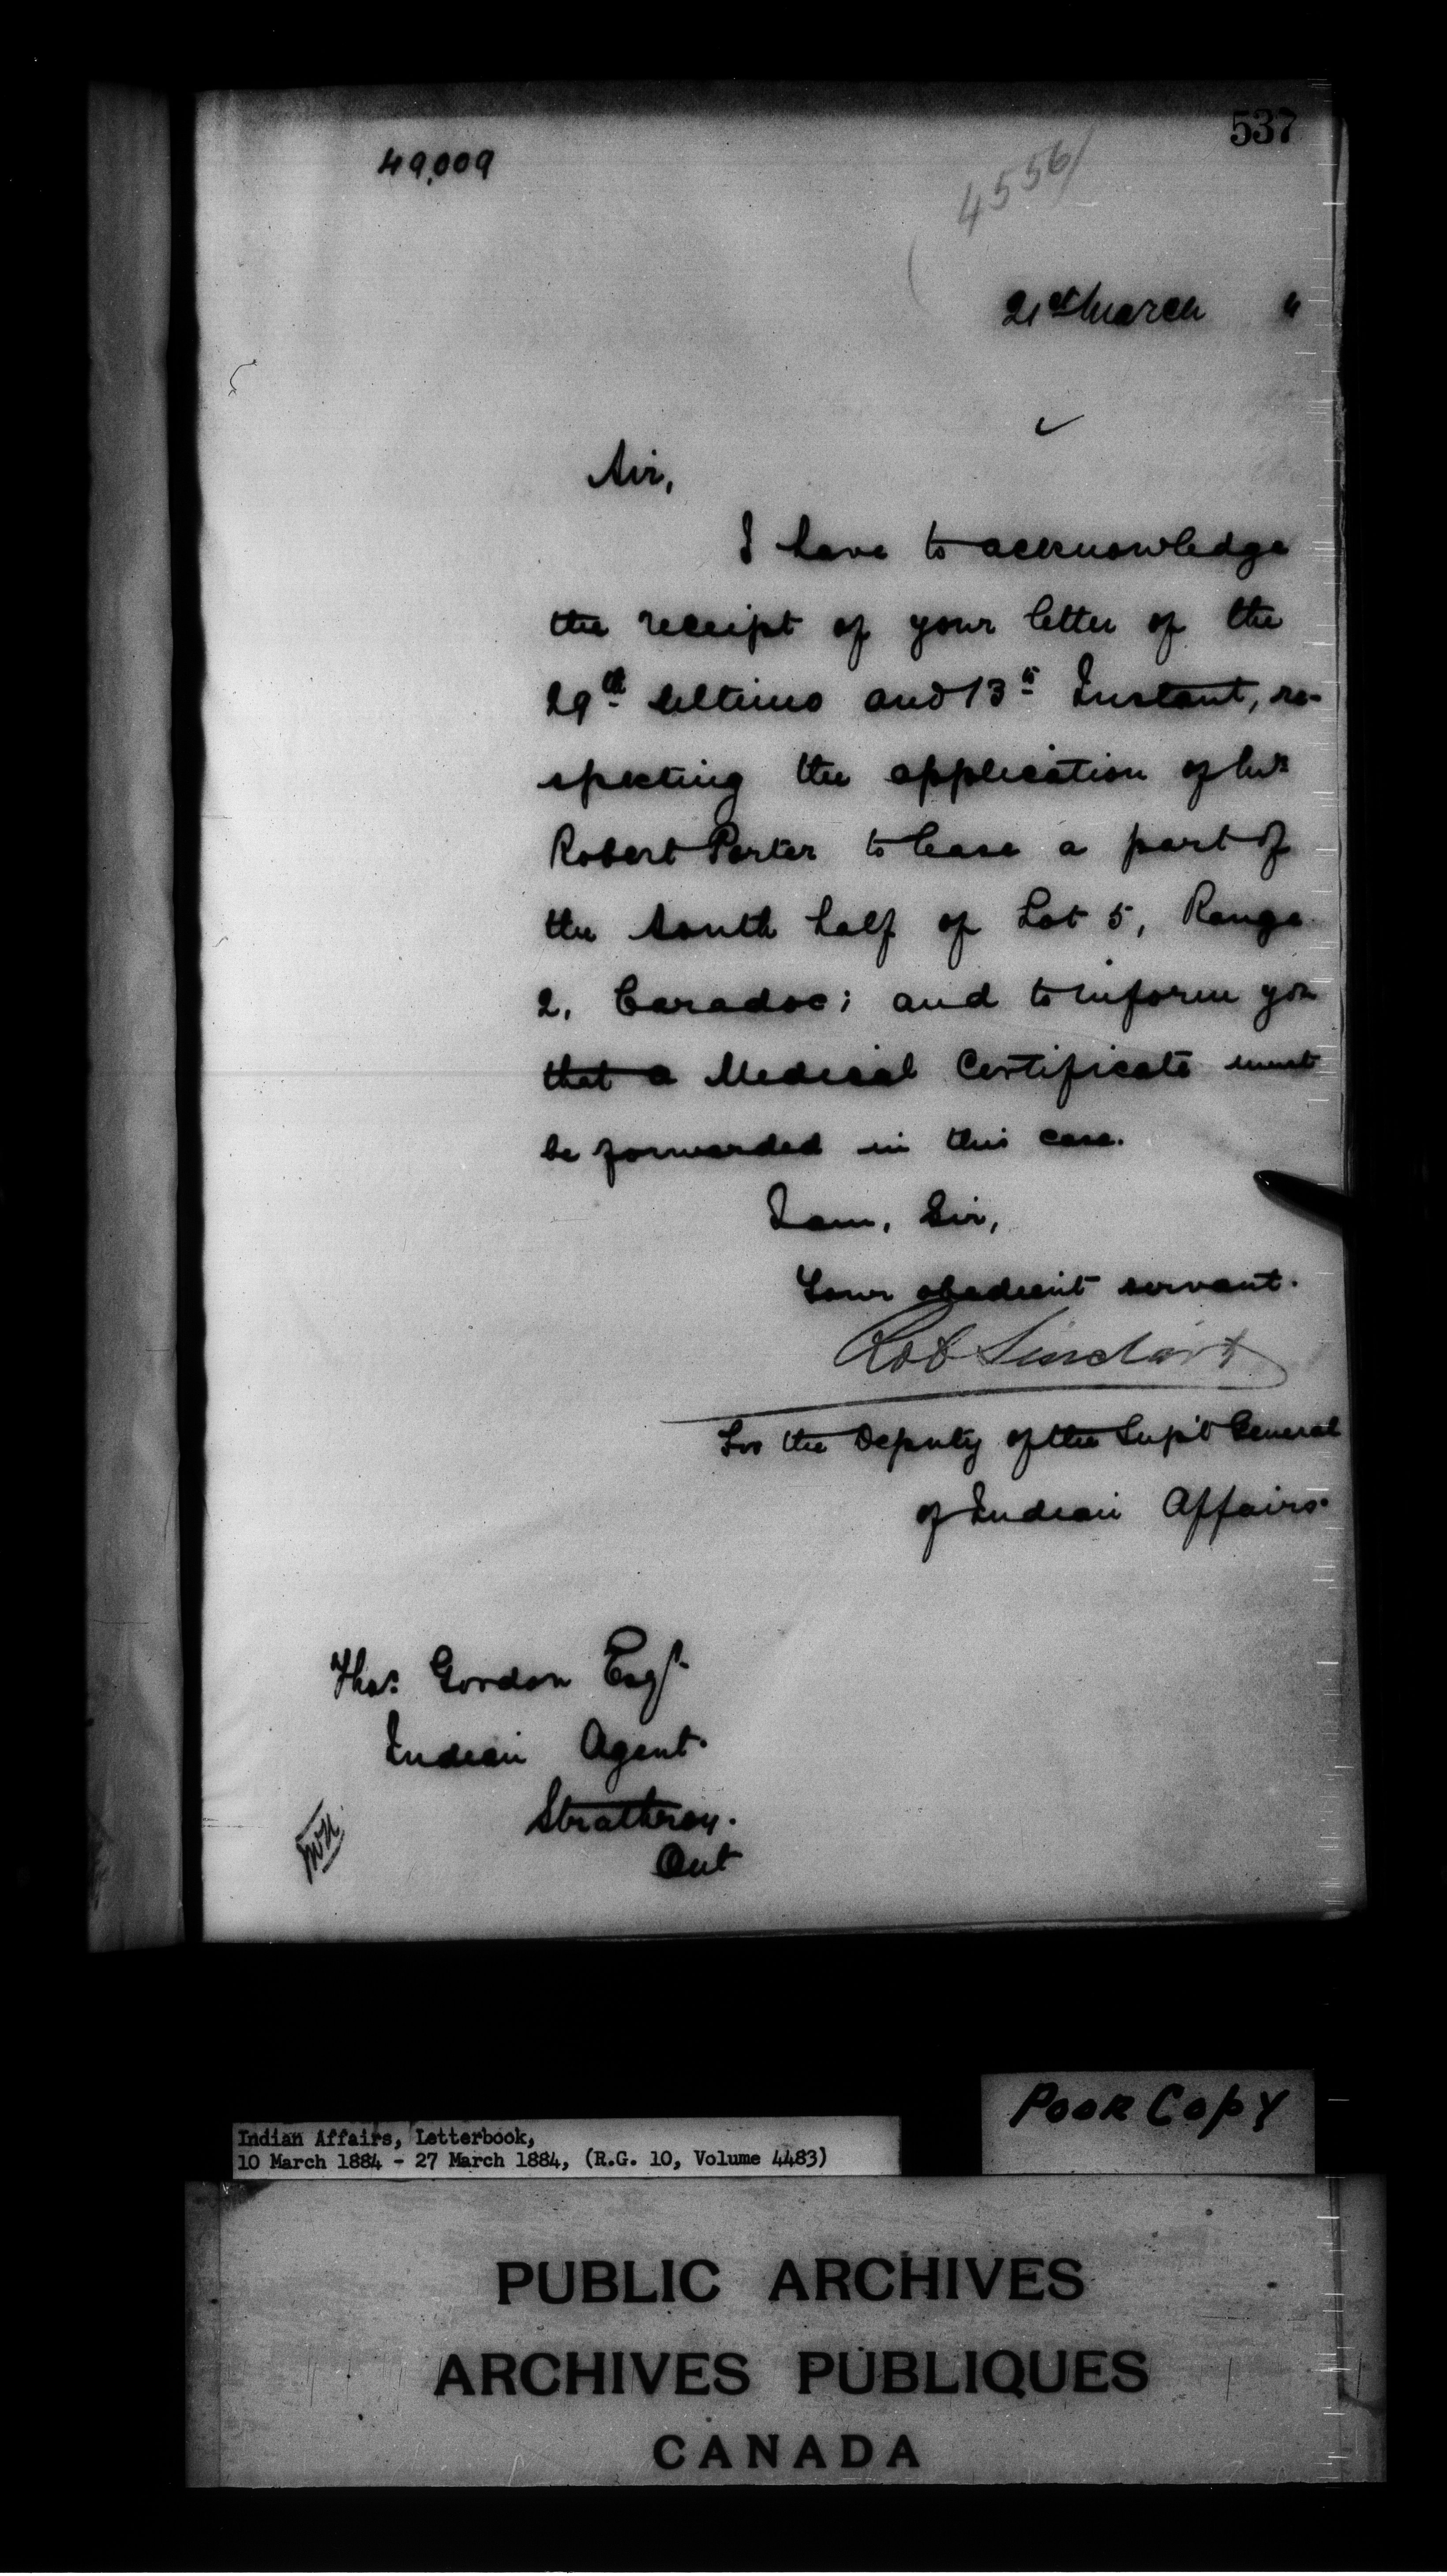 537
49,009
4556
21st March "
Sir,
I have to acknowledge
the receipt of your letter of the
29th Ultimo and 13th Instant, re-
specting the application of Mrs
Robert Porter to lease a part of
the South half of Lot 5, Range
2, Caradoc; and to inform you
that a Medical Certificate must
be forwarded in this case.
I am, Sir,
Your obedient servant.
Rob Sinclair
For the Deputy of the Supt General
of Indian Affairs.
Thos. Gordon Esqr.
Indian Agent.
Strathroy.
Ont
Poor Copy
Indian Affairs, Letterbook,
10 March 1884 - 27 March 1884, (R.G. 10, Volume 4483)
PUBLIC ARCHIVES
ARCHIVES PUBLIQUES
CANADA